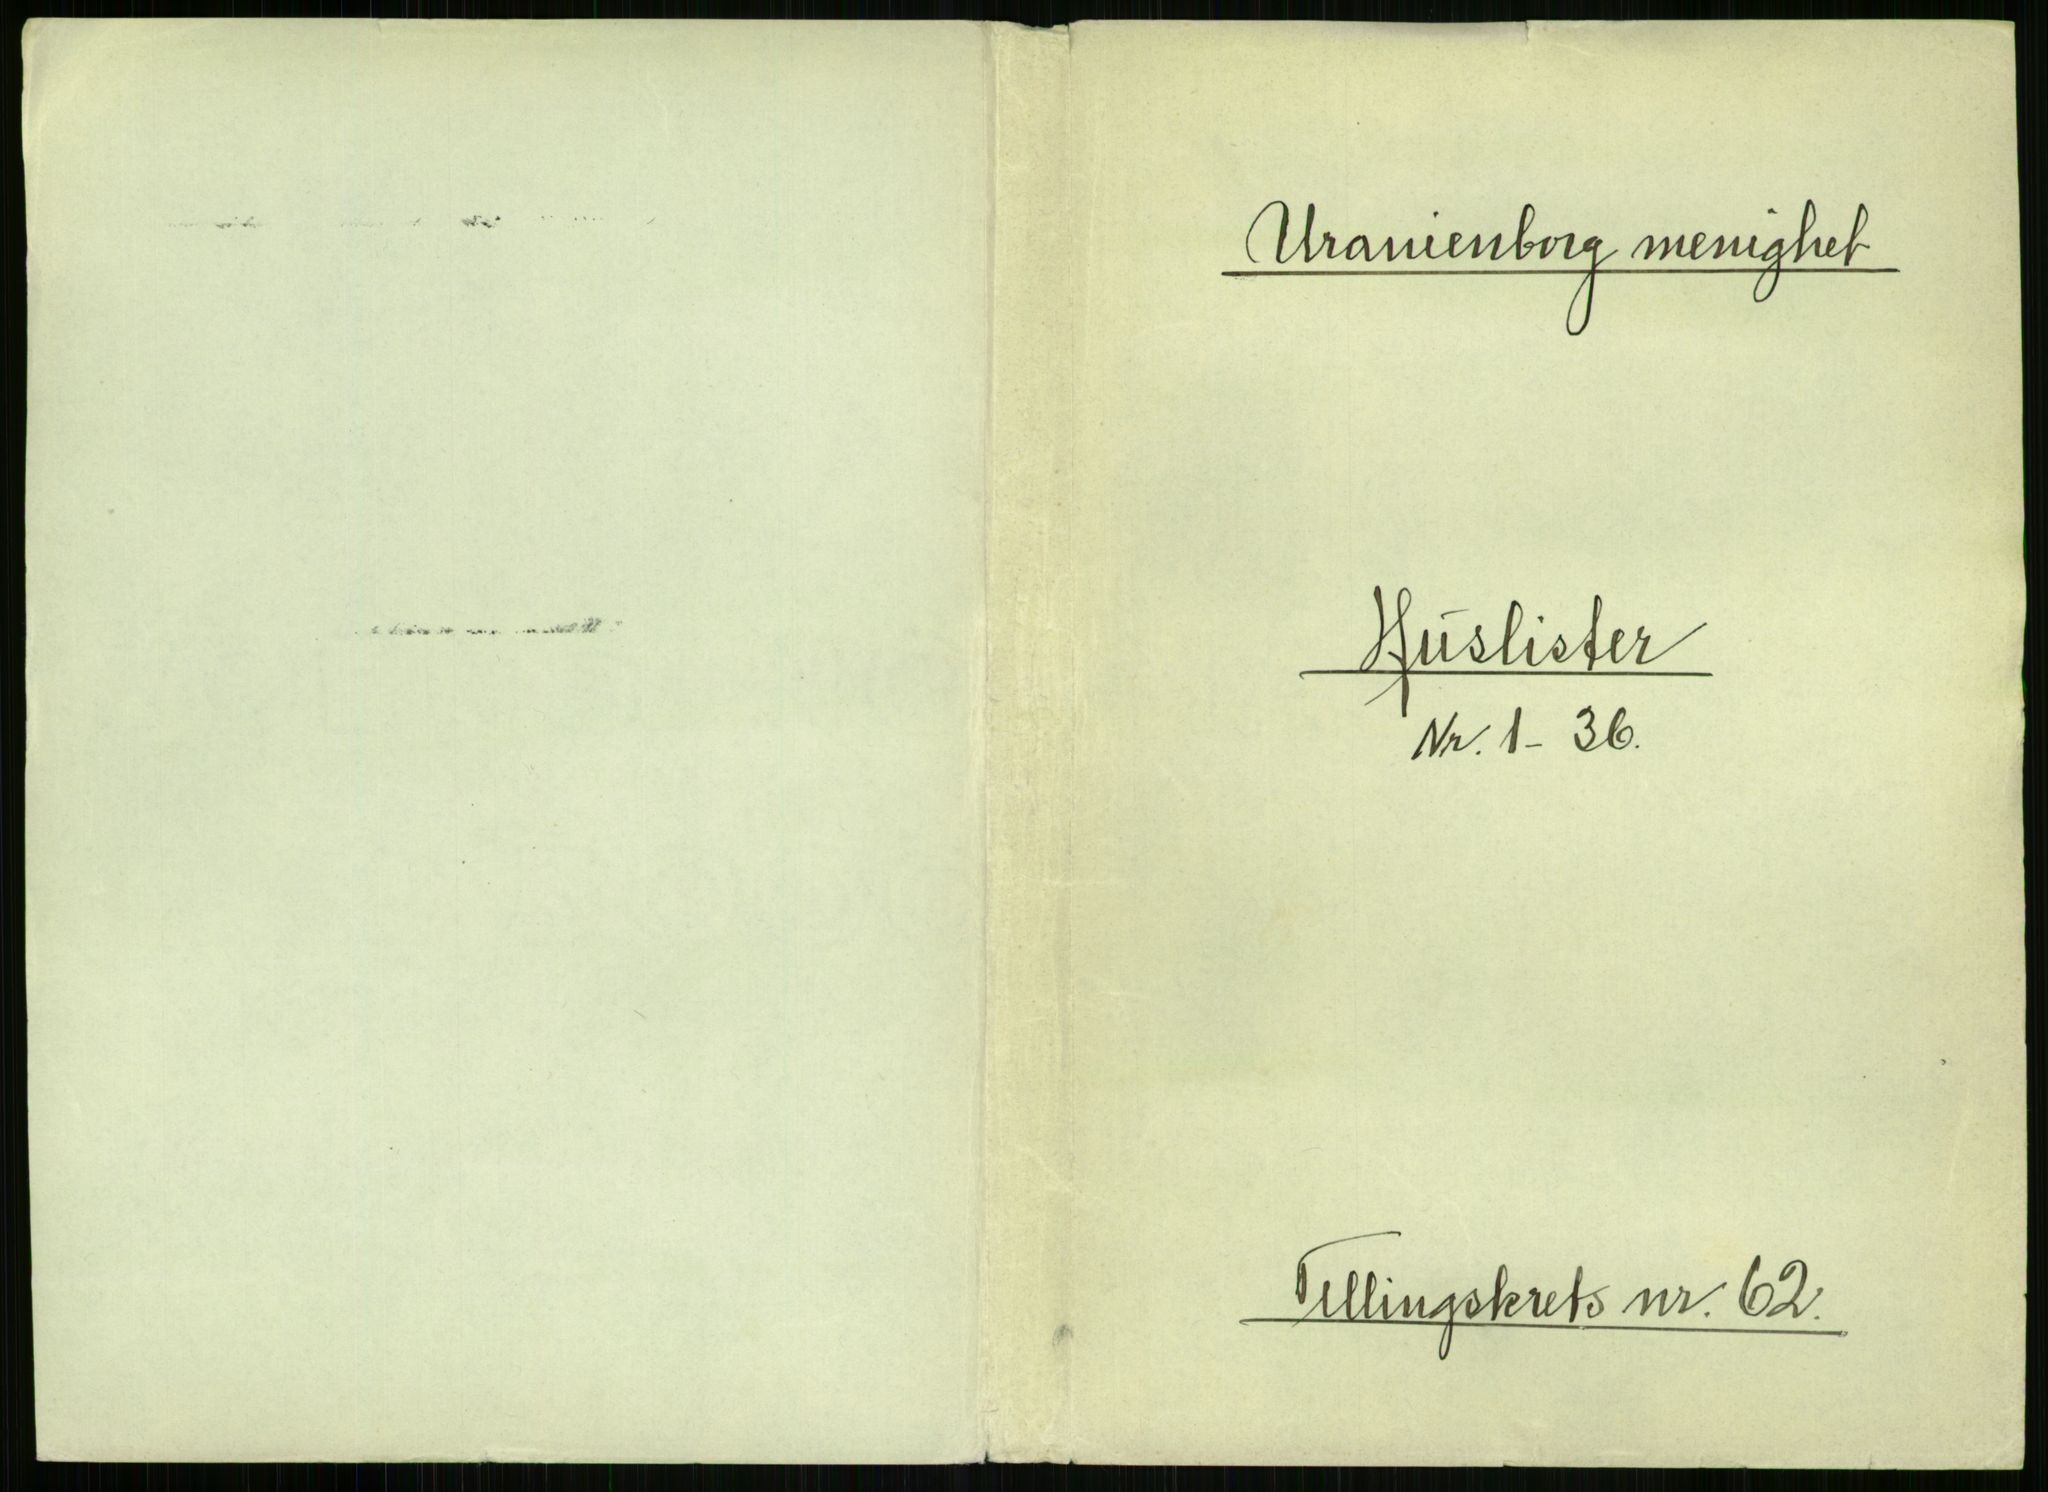 Uranienborg menighet
Huslister
Nr. 1 - 36.
Tellingskrets nr. 62.